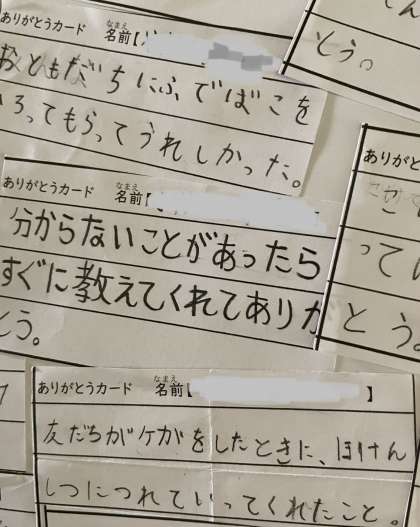 ありがとうカード 名前【
おともだちにふでばこを
ひろってもらってうれしかった。
とう。
ありがとうカード 名前【
分からないことがあったら
すぐに教えてくれてありが
とう。
ありがと
って
とう。
ありがとうカード 名前【 】
友だちがケガをしたときに、ほけん
しつにつれていってくれたこと。